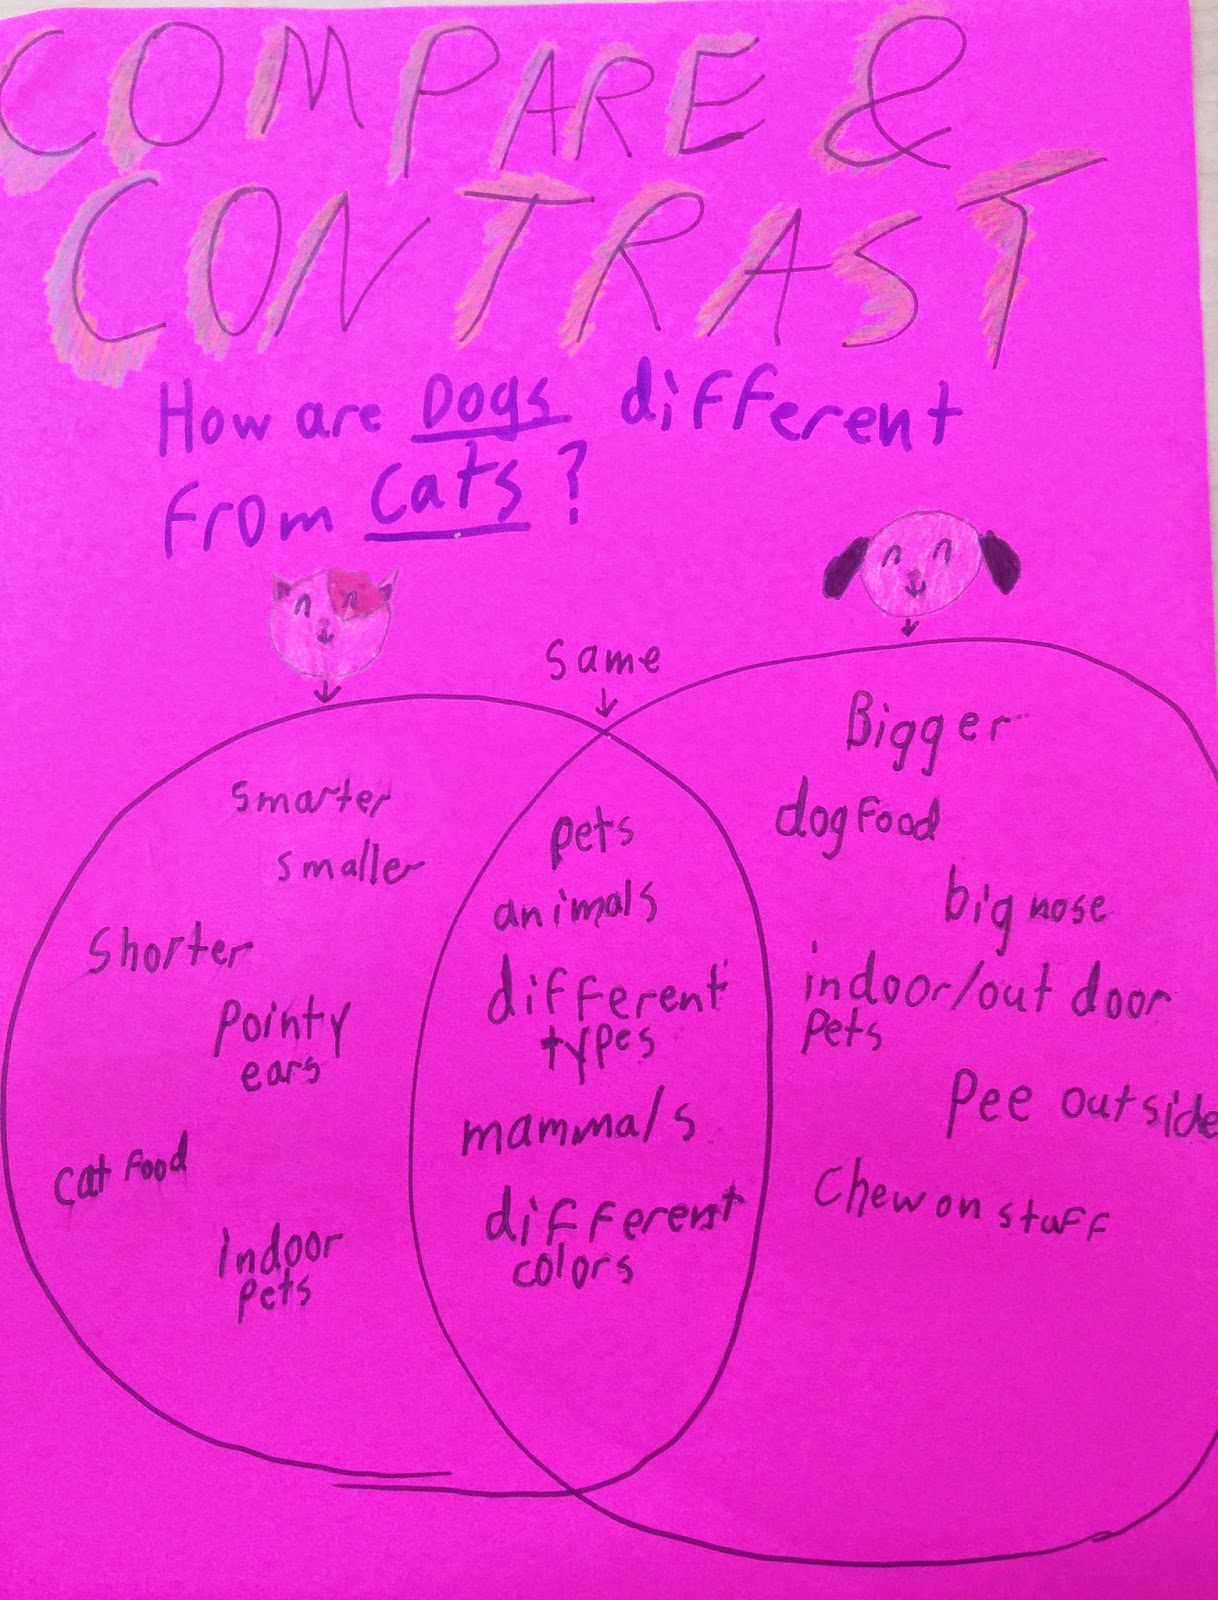 COMPARE &
CONTRAST
How are Dogs different
from Cats?
same
smarter
smaller
shorter
pointy
ears
cat food
indoor
pets
pets
animals
different
types
mammals
different
colors
Bigger
dog food
big nose
indoor/out door
pets
pee outside
chew on stuff